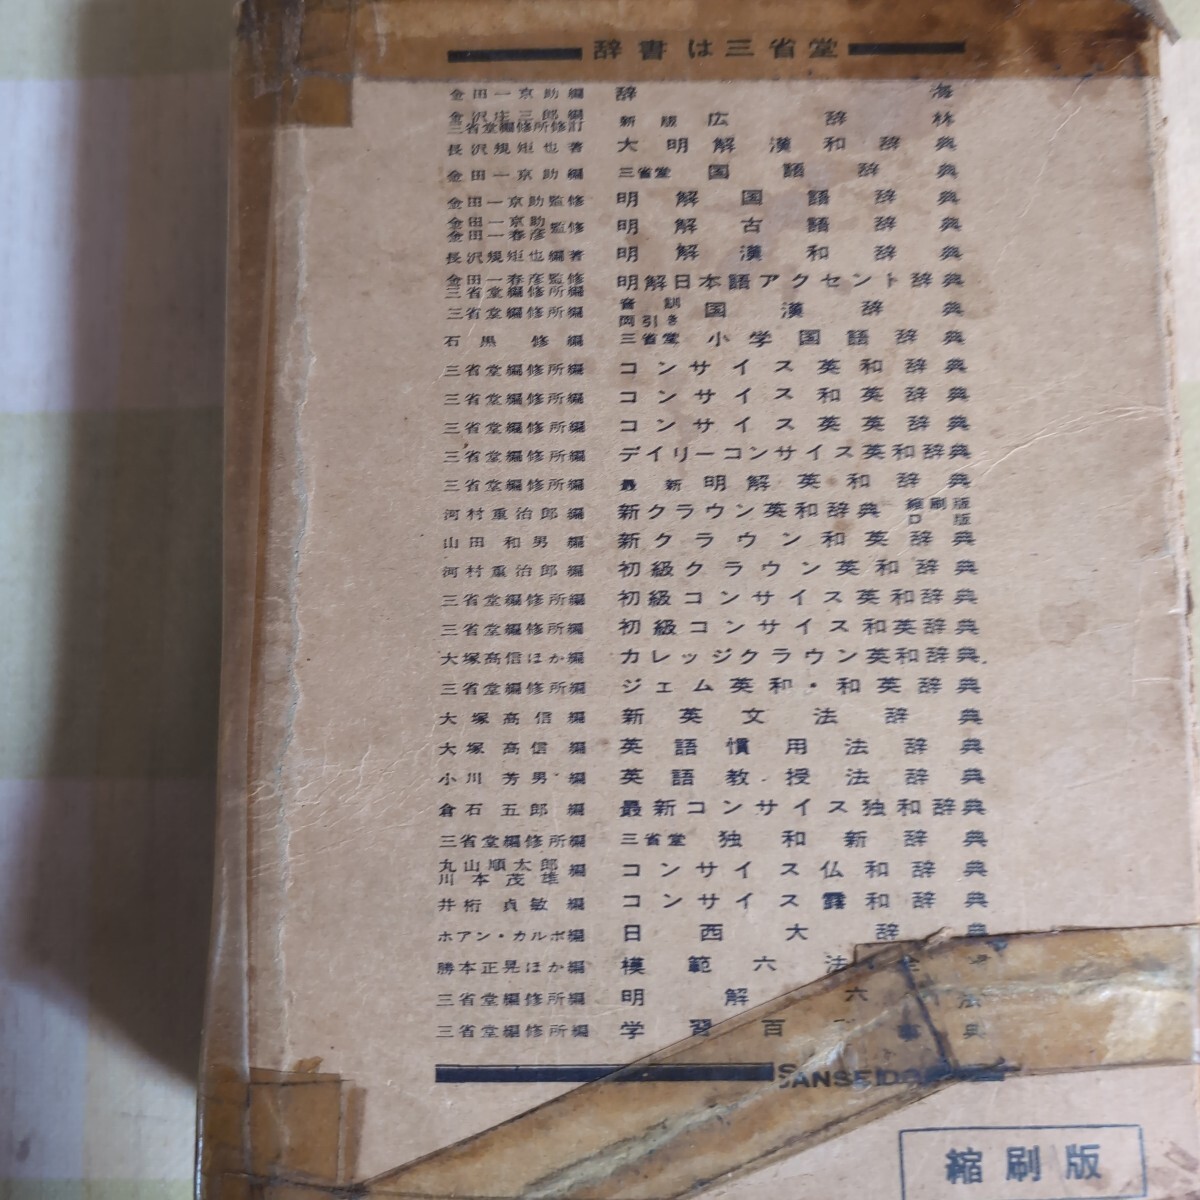 辞書は三省堂
金田一京助編 辞海
金沢庄三郎編 三省堂編修所修訂 新版 広辞林
長沢規矩也著 大明解漢和辞典
金田一京助編 三省堂 国語辞典
金田一京助監修 明解国語辞典
金田一京助 金田一春彦 監修 明解古語辞典
長沢規矩也編著 明解漢和辞典
金田一春彦監修 三省堂編修所編 明解日本語アクセント辞典
三省堂編修所編 音訓両引き 国漢辞典
石黒修編 三省堂 小学国語辞典
三省堂編修所編 コンサイス英和辞典
三省堂編修所編 コンサイス和英辞典
三省堂編修所編 コンサイス英英辞典
三省堂編修所編 デイリーコンサイス英和辞典
三省堂編修所編 最新 明解英和辞典
河村重治郎編 新クラウン英和辞典 縮刷版 D版
山田和男編 新クラウン和英辞典
河村重治郎編 初級クラウン英和辞典
三省堂編修所編 初級コンサイス英和辞典
三省堂編修所編 初級コンサイス和英辞典
大塚高信ほか編 カレッジクラウン英和辞典
三省堂編修所編 ジェム英和・和英辞典
大塚高信編 新英文法辞典
大塚高信編 英語慣用法辞典
小川芳男編 英語教授法辞典
倉石五郎編 最新コンサイス独和辞典
三省堂編修所編 三省堂 独和新辞典
丸山順太郎 川本茂雄 編 コンサイス仏和辞典
井桁貞敏編 コンサイス露和辞典
ホアン・カルボ編 日西大辞典
勝本正晃ほか編 模範六法全
三省堂編修所編 明解六法
三省堂編修所編 学習百事典
SANSEIDO
縮刷版